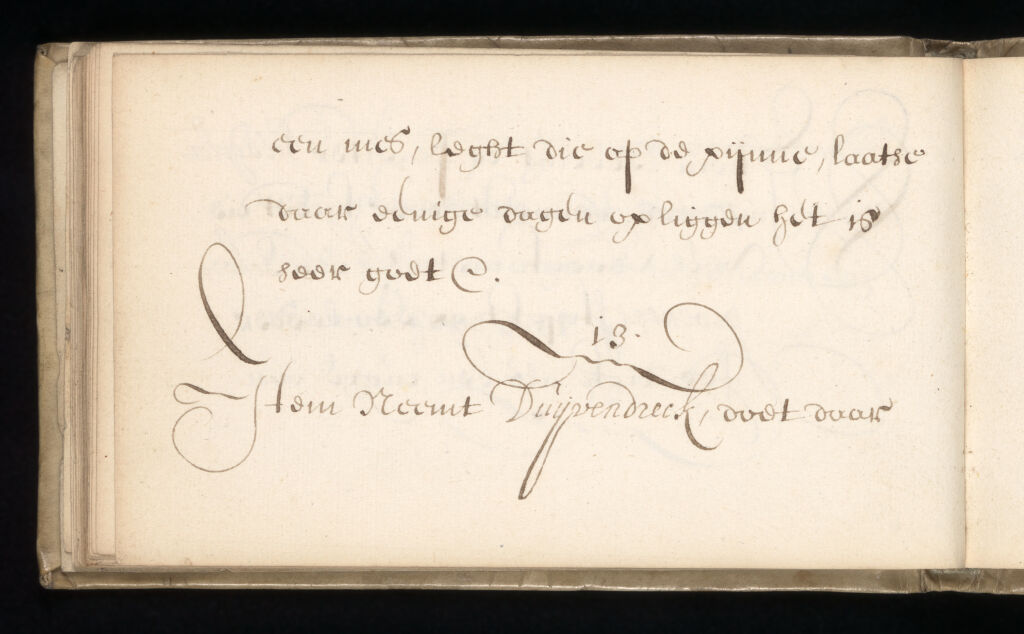 een mes, leght die op de pijnne, laatse
daar eenige dagen op liggen het is
heer goet
13.
Item Neemt Duijvendreck, doet daar